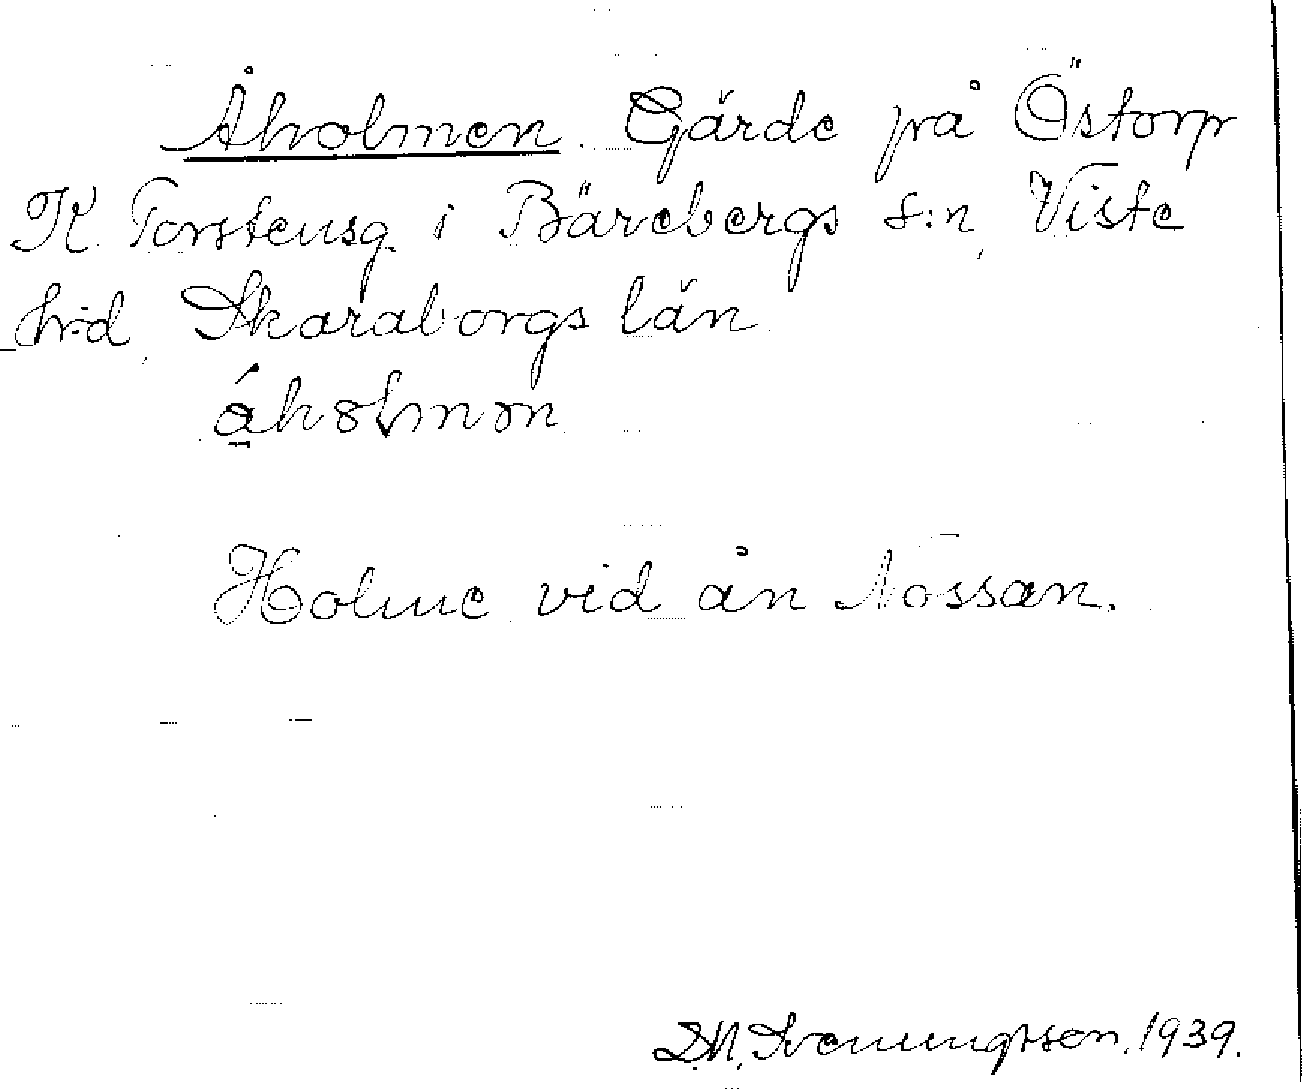 Åholmen. Gärde på Östorp
K. Torstensg. i Bärebergs s:n, Viste
hrd, Skaraborgs län.
Holme vid ån Nossan.
D.N. Svenungsson. 1939.